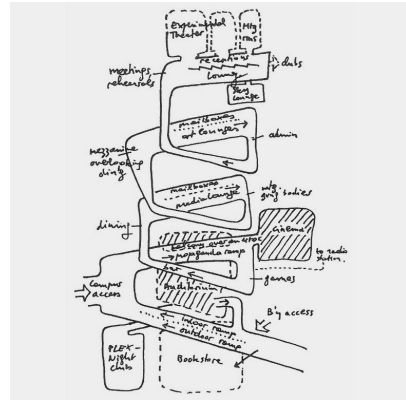 Experimental
Theater
Mtg
rms
receptions
meetings,
rehearsals
lounge
clubs
Sky
Lounge
mailboxes
art lounges
admin
mezzanine
overlooking
dining
mailboxes
media lounge
mtg
bodies
dining
Cinema
balcony over
propaganda ramp
to radio
station.
bar
games
Campus
access
Auditorium
B'y access
indoor ramp
outdoor ramp
PLEX-
Night
Club
Bookstore